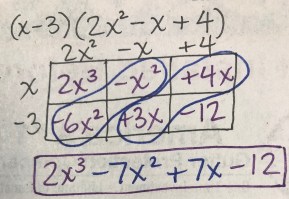 (x-3)(2x²-x+4)
2x² -x +4
x 2x³ -x² +4x
-3 -6x² +3x -12
2x³-7x²+7x-12